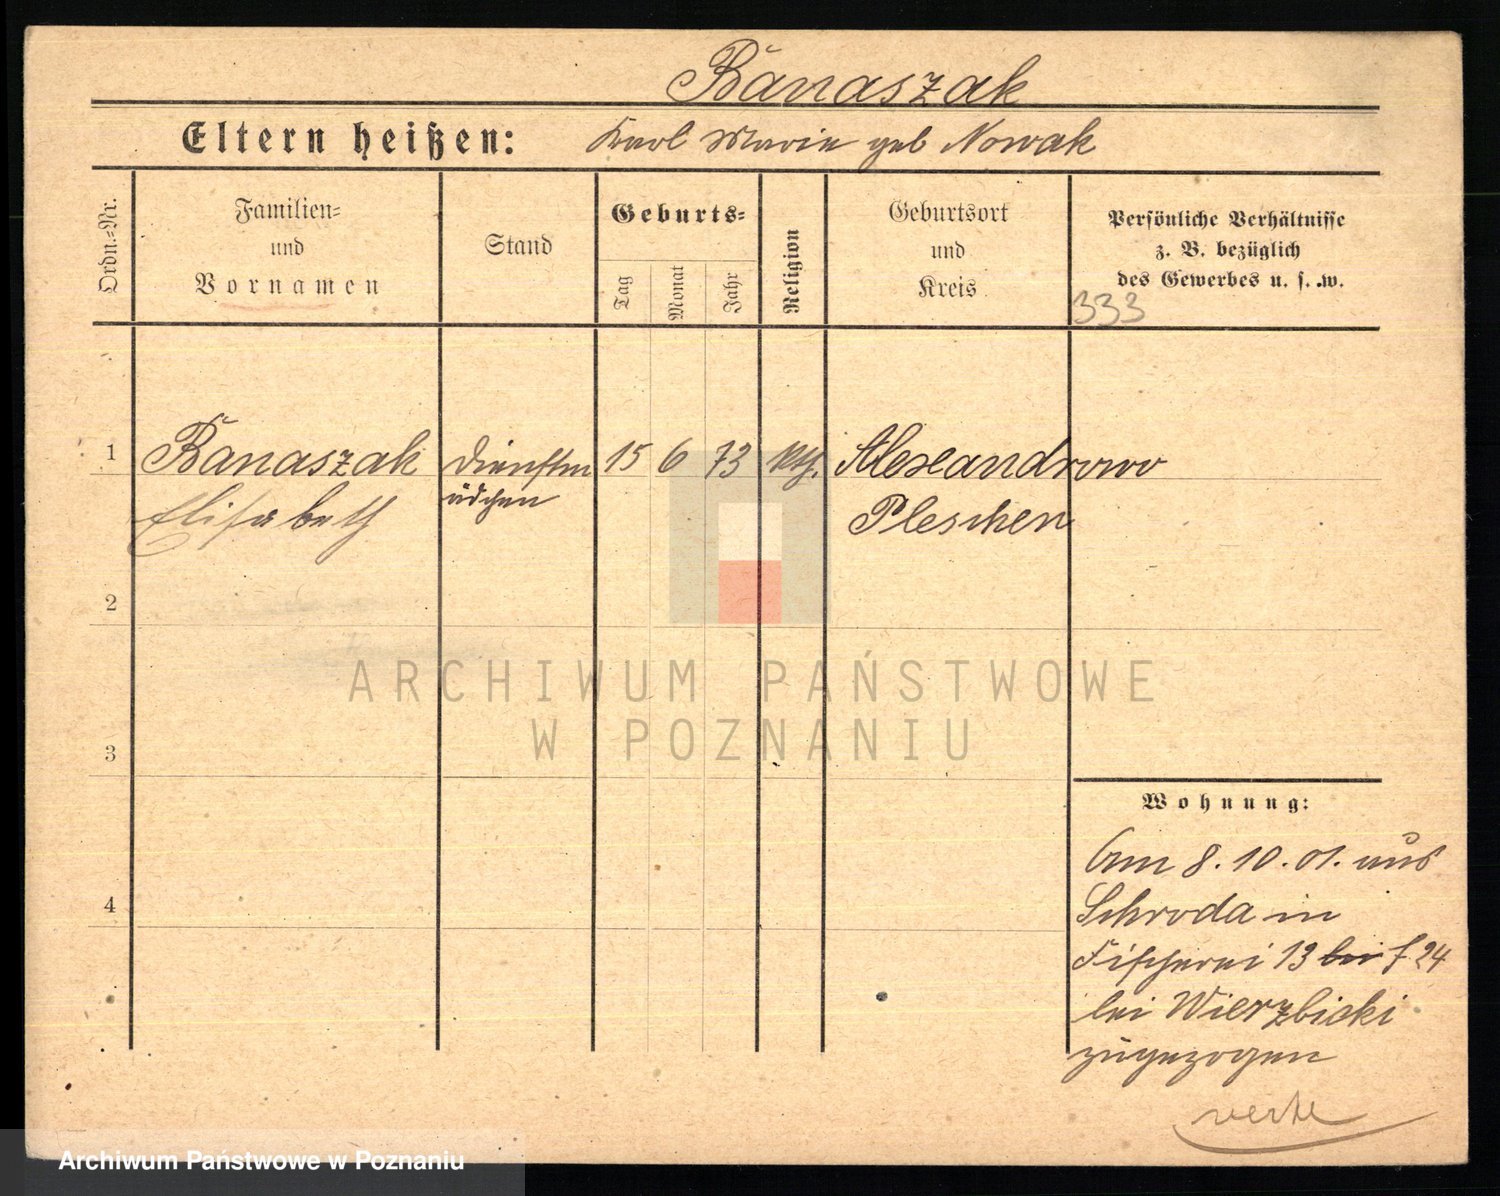 Banaszak
Eltern heißen: Karl Marie geb Nowak
Ordn.-Nr.
Familien-
und
Vornamen
Stand
Geburts-
Tag
Monat
Jahr
Religion
Geburtsort
und
Kreis
Persönliche Verhältnisse
z. B. bezüglich
des Gewerbes u. s. w.
333
1 Banaszak Dienstm 15 6 73 kth. Alexandrowo
Elisabeth ädchen Pleschen
2
3
4
Wohnung:
Am 8. 10. 01. aus
Schroda in
Fischerei 13 bei f. 24
bei Wierzbicki
zugezogen
verte
ARCHIWUM PAŃSTWOWE
W POZNANIU
Archiwum Państwowe w Poznaniu